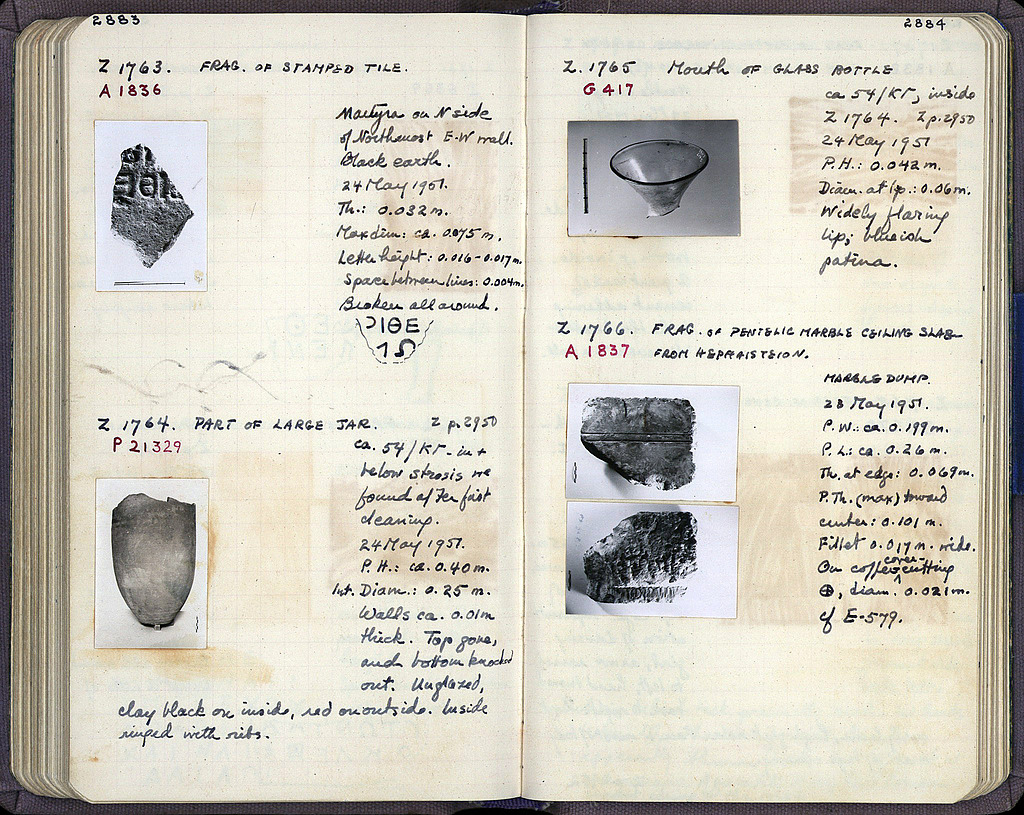 2883
Z 1763. FRAG. OF STAMPED TILE.
A 1836
Martyra on N side
of Northmost E-W wall.
Black earth.
24 May 1951.
Th.: 0.032 m.
Max dim: ca. 0.075 m.
Letter height: 0.016-0.017m.
Space between lines: 0.004m.
Broken all around.
ƆΙΘΕ
Z 1764. PART OF LARGE JAR. Z p. 2950
P 21329
ca. 54/ΚΓ - in +
below strosis we
found after first
cleaning.
24 May 1951.
P.H.: ca. 0.40 m.
Int. Diam.: 0.25 m.
Walls ca. 0.01m
thick. Top gone,
and bottom knocked
out. Unglazed,
clay black on inside, red on outside. Inside
ringed with ribs.
2884
Z. 1765 MOUTH OF GLASS BOTTLE
G 417
ca 54/ΚΓ, inside
Z 1764. Z p. 2950
24 May 1951
P.H.: 0.042 m.
Diam. at lip.: 0.06 m.
Widely flaring
lip; blueish
patina.
Z 1766. FRAG. OF PENTELIC MARBLE CEILING SLAB
A 1837 FROM HEPHAISTEION.
MARBLE DUMP.
23 May 1951.
P.W.: ca. 0.199 m.
P.L.: ca. 0.26 m.
Th. at edge: 0.069m.
P.Th. (max) toward
center: 0.101 m.
Fillet 0.017 m. wide.
On coffer-cover cutting
⊕, diam. 0.021m.
cf E-579.